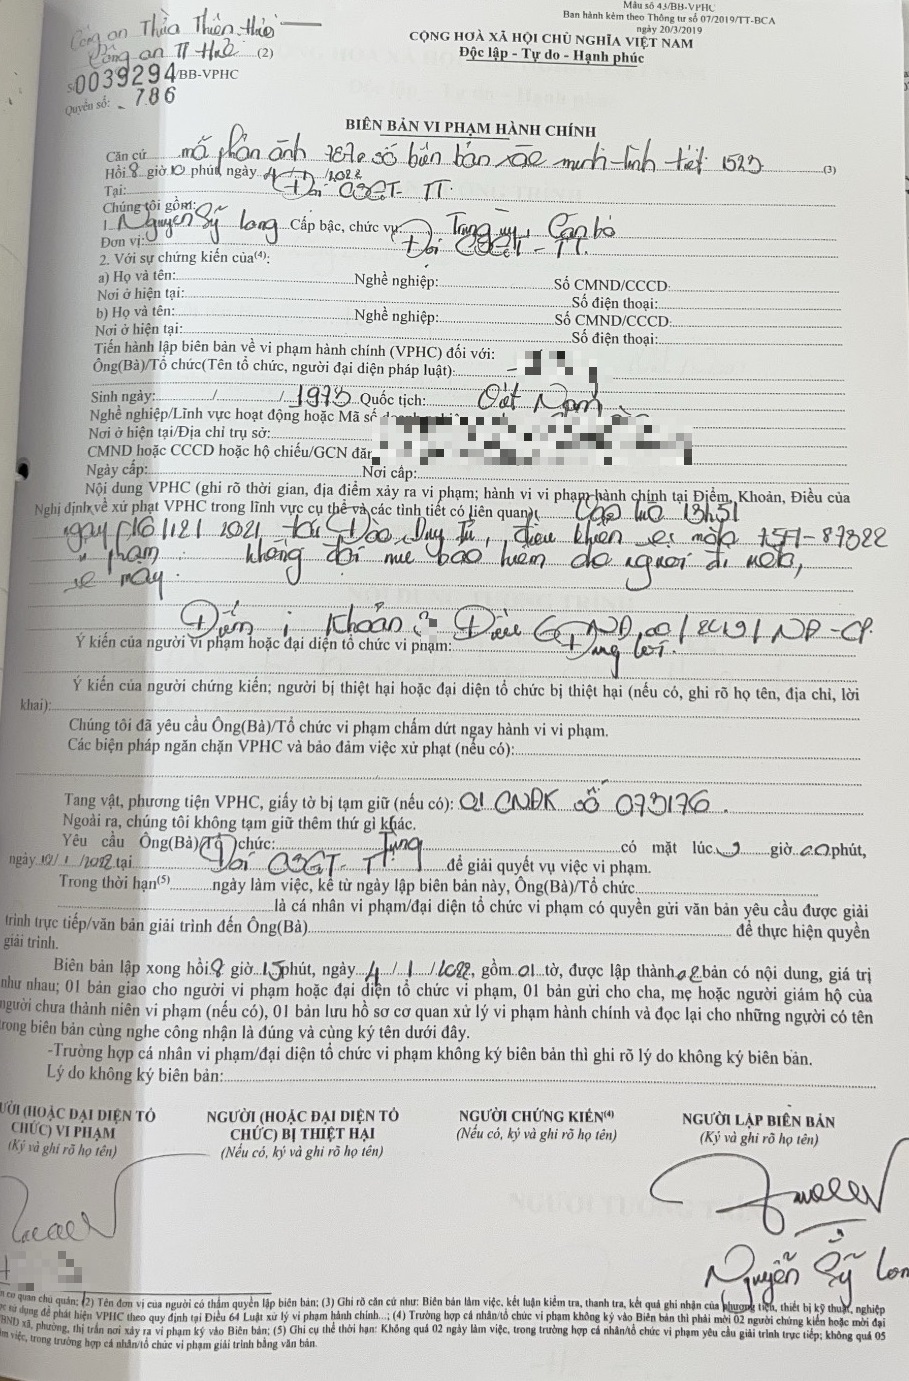 Mẫu số 43/BB-VPHC
Ban hành kèm theo Thông tư số 07/2019/TT-BCA
ngày 20/3/2019
Công an Thừa Thiên Huế
Công an TP Huế (2)
CỘNG HOÀ XÃ HỘI CHỦ NGHĨA VIỆT NAM
Độc lập - Tự do - Hạnh phúc
Số 0039294/BB-VPHC
Quyển số: 786
BIÊN BẢN VI PHẠM HÀNH CHÍNH
Căn cứ mã phản ánh số biên bản xác minh tình tiết 1523 (3)
Hồi 8 giờ 10 phút, ngày 4/1/2022
Tại: Đội CSGT-TT
Chúng tôi gồm:
1. Nguyễn Sỹ Long Cấp bậc, chức vụ: Trung úy, Cán bộ
Đơn vị: Đội CSGT-TT.
2. Với sự chứng kiến của(4):
a) Họ và tên: Nghề nghiệp: Số CMND/CCCD:
Nơi ở hiện tại: Số điện thoại:
b) Họ và tên: Nghề nghiệp: Số CMND/CCCD:
Nơi ở hiện tại: Số điện thoại:
Tiến hành lập biên bản về vi phạm hành chính (VPHC) đối với:
Ông(Bà)/Tổ chức(Tên tổ chức, người đại diện pháp luật):
Sinh ngày: / /1973 Quốc tịch: Việt Nam
Nghề nghiệp/Lĩnh vực hoạt động hoặc Mã số
Nơi ở hiện tại/Địa chỉ trụ sở:
CMND hoặc CCCD hoặc hộ chiếu/GCN
Ngày cấp: Nơi cấp:
Nội dung VPHC (ghi rõ thời gian, địa điểm xảy ra vi phạm; hành vi vi phạm hành chính tại Điểm, Khoản, Điều của
Nghị định về xử phạt VPHC trong lĩnh vực cụ thể và các tình tiết có liên quan): Vào lúc 13h51
ngày 16/12/2021 tại Đào Duy Từ, điều khiển xe mô tô 75F1-87322
vi phạm: không đội mũ bảo hiểm cho người đi mô tô,
xe máy.
Điểm i Khoản 2 Điều 6 NĐ 100/2019/NĐ-CP.
Ý kiến của người vi phạm hoặc đại diện tổ chức vi phạm: Đúng lỗi.
Ý kiến của người chứng kiến; người bị thiệt hại hoặc đại diện tổ chức bị thiệt hại (nếu có, ghi rõ họ tên, địa chỉ, lời
khai):
Chúng tôi đã yêu cầu Ông(Bà)/Tổ chức vi phạm chấm dứt ngay hành vi vi phạm.
Các biện pháp ngăn chặn VPHC và bảo đảm việc xử phạt (nếu có):
Tang vật, phương tiện VPHC, giấy tờ bị tạm giữ (nếu có): 01 CNĐK số 073176.
Ngoài ra, chúng tôi không tạm giữ thêm thứ gì khác.
Yêu cầu Ông(Bà)/Tổ chức: Tụng có mặt lúc 9 giờ 00 phút,
ngày 12/1/2022 tại Đội CSGT-TT để giải quyết vụ việc vi phạm.
Trong thời hạn(5) ngày làm việc, kể từ ngày lập biên bản này, Ông(Bà)/Tổ chức
là cá nhân vi phạm/đại diện tổ chức vi phạm có quyền gửi văn bản yêu cầu được giải
trình trực tiếp/văn bản giải trình đến Ông(Bà) để thực hiện quyền
giải trình.
Biên bản lập xong hồi 8 giờ 15 phút, ngày 4/1/2022, gồm 01 tờ, được lập thành 02 bản có nội dung, giá trị
như nhau; 01 bản giao cho người vi phạm hoặc đại diện tổ chức vi phạm, 01 bản gửi cho cha, mẹ hoặc người giám hộ của
người chưa thành niên vi phạm (nếu có), 01 bản lưu hồ sơ cơ quan xử lý vi phạm hành chính và đọc lại cho những người có tên
trong biên bản cùng nghe công nhận là đúng và cùng ký tên dưới đây.
-Trường hợp cá nhân vi phạm/đại diện tổ chức vi phạm không ký biên bản thì ghi rõ lý do không ký biên bản.
Lý do không ký biên bản:
ƯỜI (HOẶC ĐẠI DIỆN TỔ CHỨC) VI PHẠM
(Ký và ghi rõ họ tên)
NGƯỜI (HOẶC ĐẠI DIỆN TỔ CHỨC) BỊ THIỆT HẠI
(Nếu có, ký và ghi rõ họ tên)
NGƯỜI CHỨNG KIẾN(4)
(Nếu có, ký và ghi rõ họ tên)
NGƯỜI LẬP BIÊN BẢN
(Ký và ghi rõ họ tên)
Nguyễn Sỹ Lon
cơ quan chủ quản; (2) Tên đơn vị của người có thẩm quyền lập biên bản; (3) Ghi rõ căn cứ như: Biên bản làm việc, kết luận kiểm tra, thanh tra, kết quả ghi nhận của phương tiện, thiết bị kỹ thuật, nghiệp
sử dụng để phát hiện VPHC theo quy định tại Điều 64 Luật xử lý vi phạm hành chính...; (4) Trường hợp cá nhân/tổ chức vi phạm không ký vào Biên bản thì phải mời 02 người chứng kiến hoặc mời đại
BND xã, phường, thị trấn nơi xảy ra vi phạm ký vào Biên bản; (5) Ghi cụ thể thời hạn: Không quá 02 ngày làm việc, trong trường hợp cá nhân/tổ chức vi phạm yêu cầu giải trình trực tiếp; không quá 05
làm việc, trong trường hợp cá nhân/tổ chức vi phạm giải trình bằng văn bản.